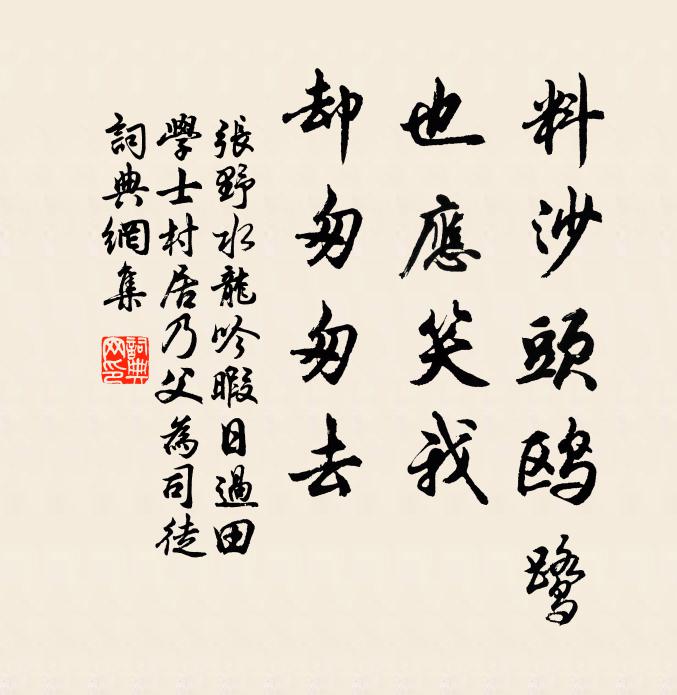 料沙頭鸥鹭
也應笑我
却匆匆去
張野水龍吟暇日過田
學士村居乃父為司徒
詞典網集
詞典網印